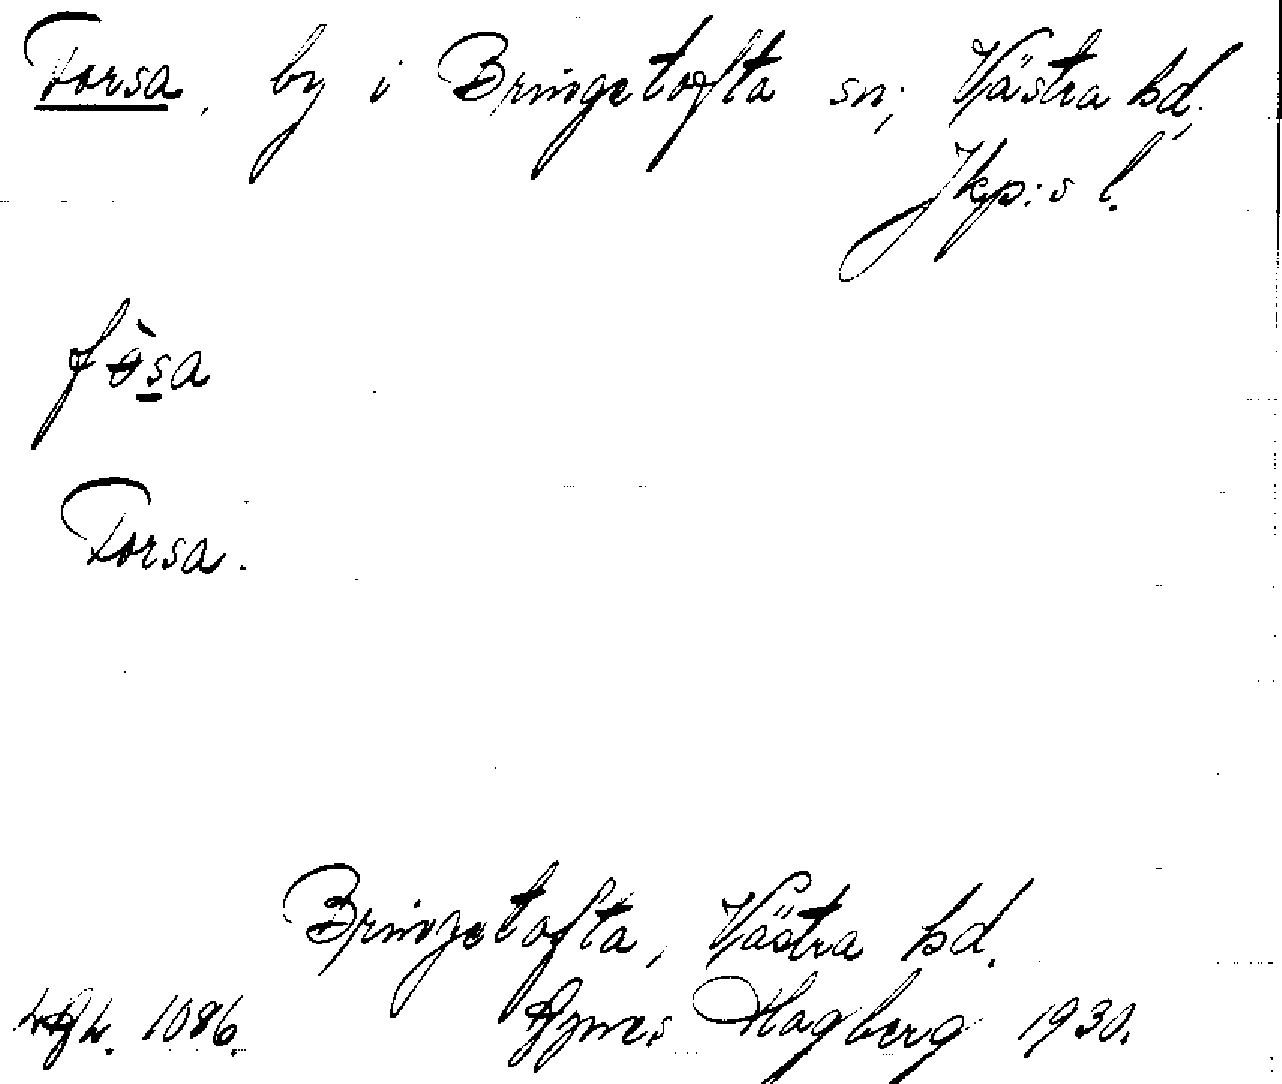 Forsa, by i Bringetofta sn; Västra hd,
Jkp:s l.
fòsa
Forsa.
Bringetofta, Västra hd.
1086. Agnes Hagberg 1930.